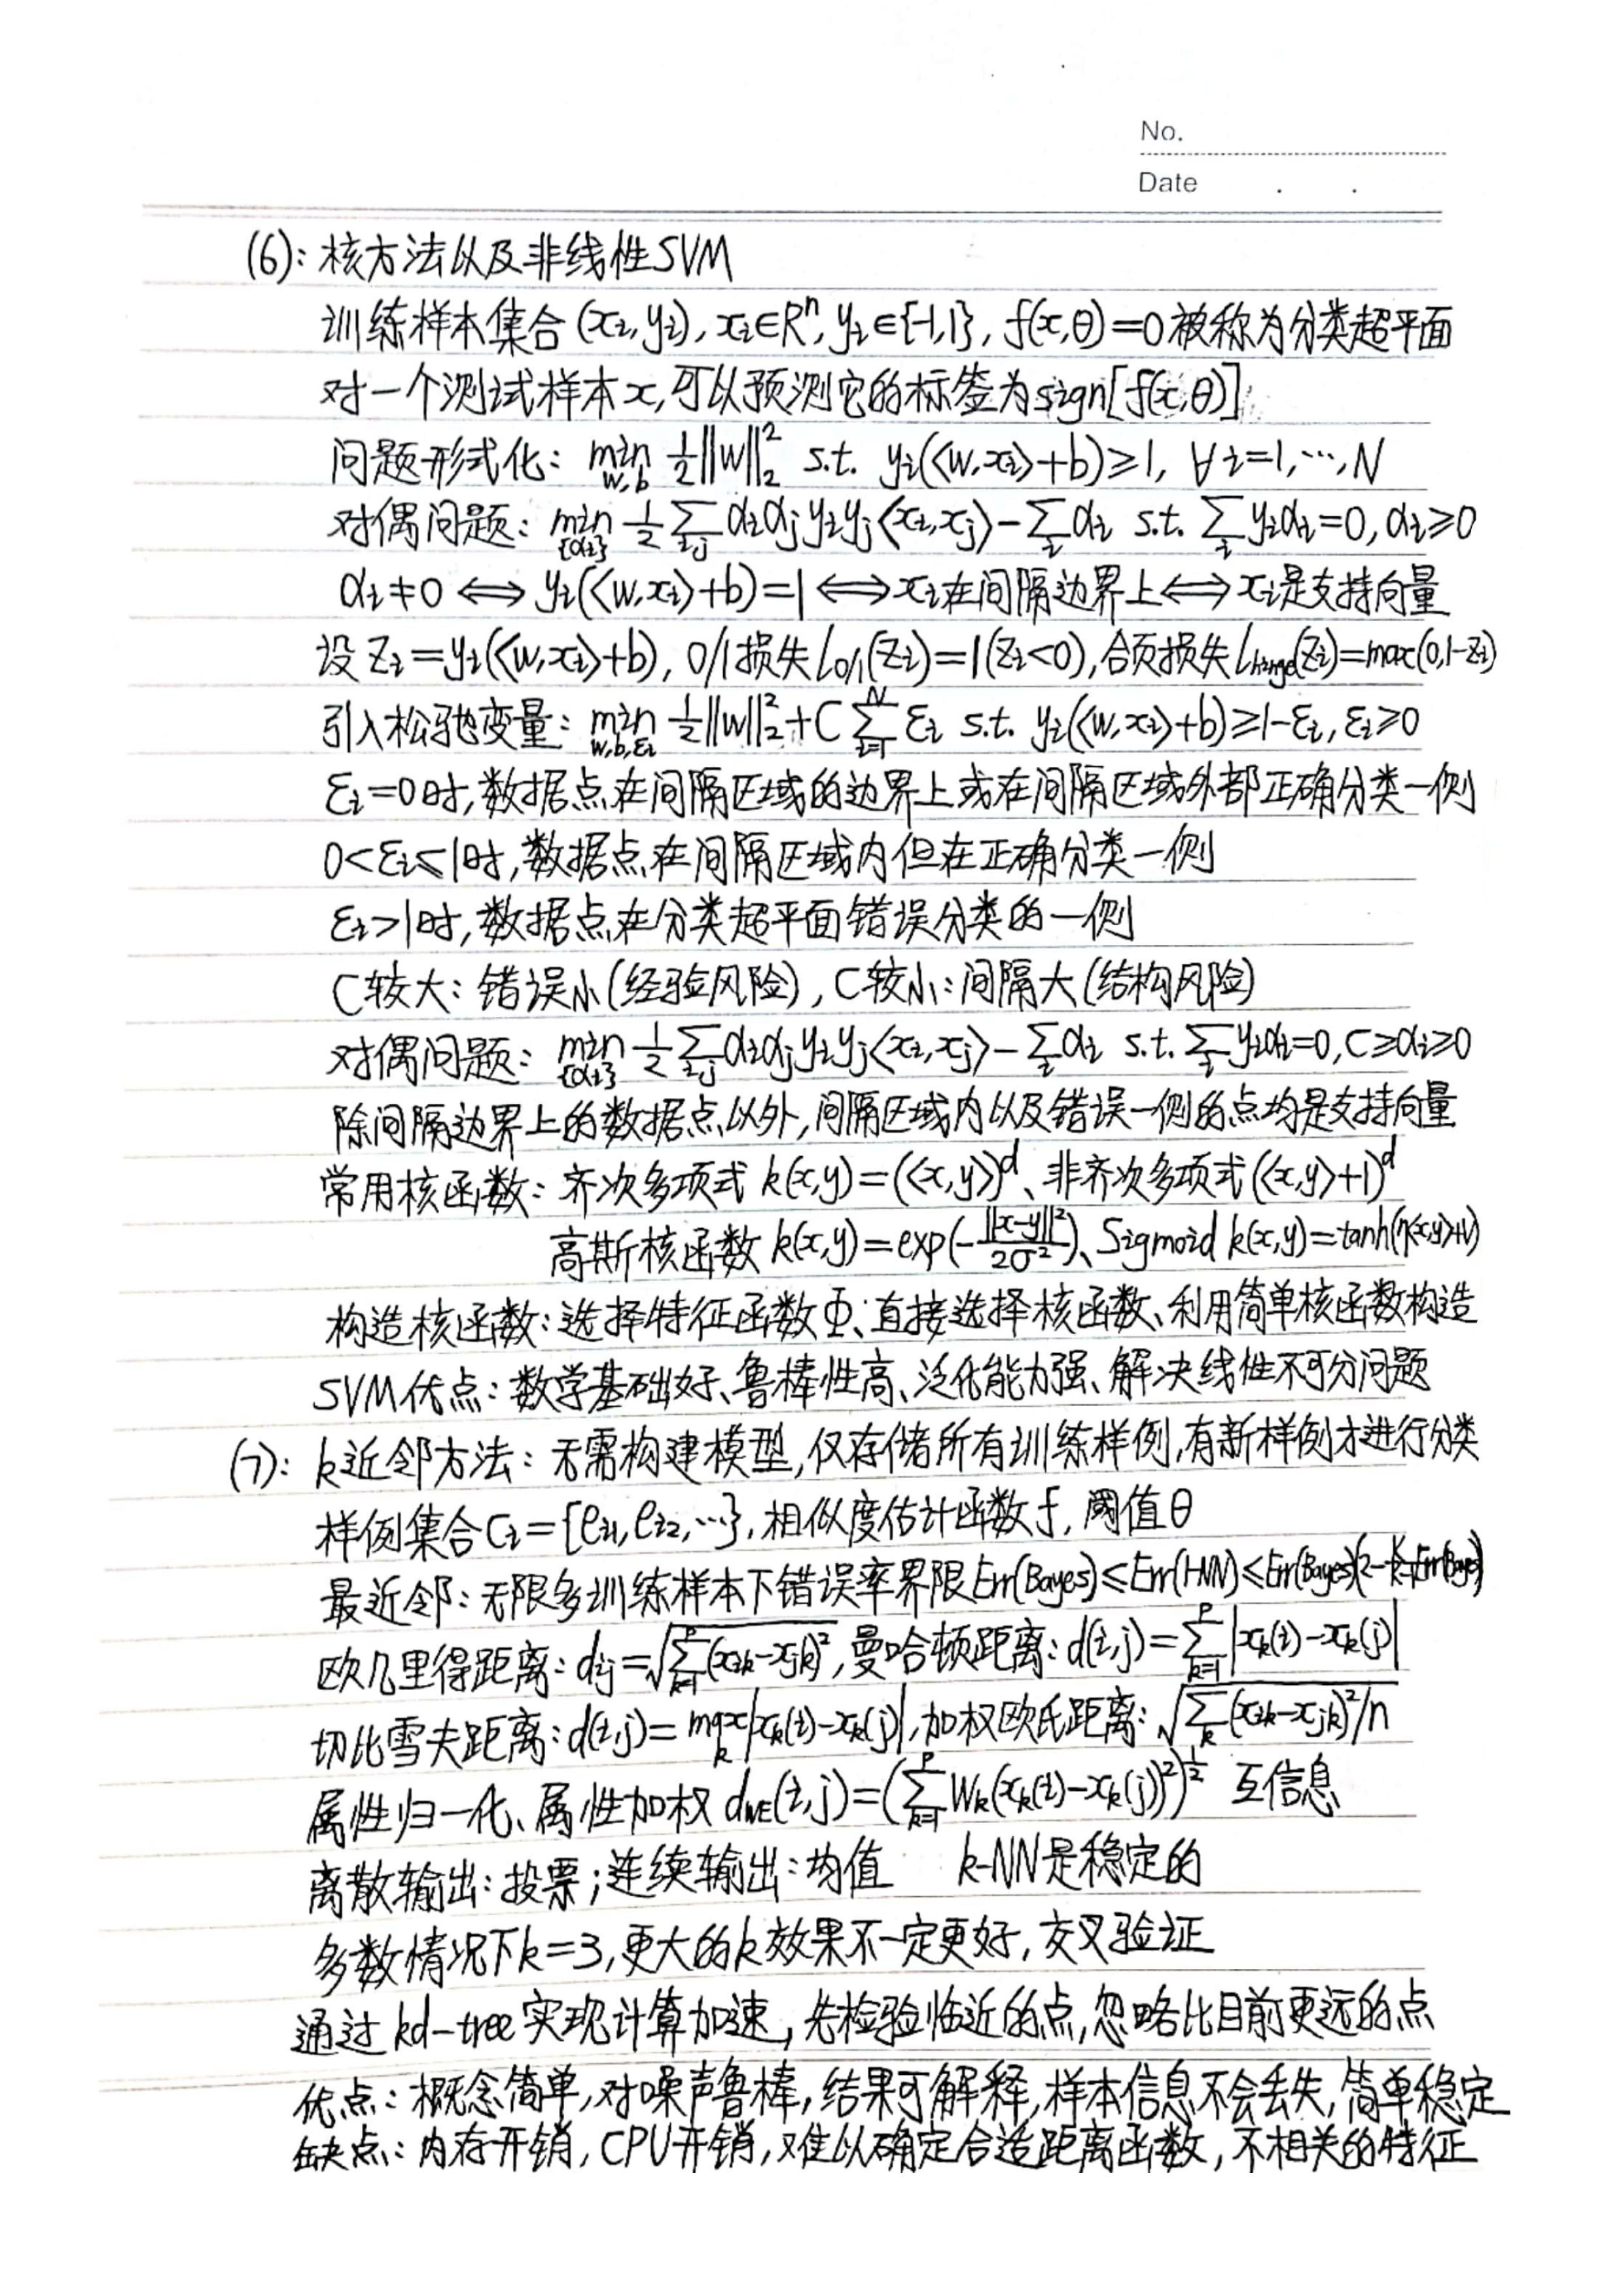 No.
Date . .
(6): 核方法以及非线性SVM
训练样本集合(xi,yi), xi∈Rⁿ, yi∈{-1,1}, f(x,θ)=0被称为分类超平面
对一个测试样本x,可以预测它的标签为sign[f(x,θ)]
问题形式化: min_{w,b} ½||w||₂² s.t. yi(⟨w,xi⟩+b)≥1, ∀i=1,…,N
对偶问题: min_{{αi}} ½∑_{i,j}αiαjyiyj⟨xi,xj⟩-∑_i αi s.t. ∑_i yiαi=0, αi≥0
αi≠0 ⟺ yi(⟨w,xi⟩+b)=1 ⟺ xi在间隔边界上 ⟺ xi是支持向量
设zi=yi(⟨w,xi⟩+b), 0/1损失L_{0/1}(zi)=1(zi<0),合页损失L_{hinge}(zi)=max(0,1-zi)
引入松弛变量: min_{w,b,εi} ½||w||₂²+C∑_{i=1}^N εi s.t. yi(⟨w,xi⟩+b)≥1-εi, εi≥0
εi=0时,数据点在间隔区域的边界上或在间隔区域外部正确分类一侧
0<εi≤1时,数据点在间隔区域内但在正确分类一侧
εi>1时,数据点在分类超平面错误分类的一侧
C较大: 错误小(经验风险), C较小: 间隔大(结构风险)
对偶问题: min_{{αi}} ½∑_{i,j}αiαjyiyj⟨xi,xj⟩-∑_i αi s.t. ∑_i yiαi=0, C≥αi≥0
除间隔边界上的数据点以外,间隔区域内以及错误一侧的点均是支持向量
常用核函数: 齐次多项式 k(x,y)=(⟨x,y⟩)^d、非齐次多项式(⟨x,y⟩+1)^d
高斯核函数 k(x,y)=exp(-||x-y||²/2σ²)、Sigmoid k(x,y)=tanh(η⟨x,y⟩+ν)
构造核函数: 选择特征函数Φ、直接选择核函数、利用简单核函数构造
SVM优点: 数学基础好、鲁棒性高、泛化能力强、解决线性不可分问题
(7): k近邻方法: 无需构建模型,仅存储所有训练样例,有新样例才进行分类
样例集合Ci={ei1,ei2,…}, 相似度估计函数f, 阈值θ
最近邻: 无限多训练样本下错误率界限Err(Bayes)≤Err(1-NN)≤Err(Bayes)(2-K/(K-1)Err(Bayes))
欧几里得距离: dij=√(∑_{k=1}^p(xik-xjk)²), 曼哈顿距离: d(i,j)=∑_{k=1}^p|xk(i)-xk(j)|
切比雪夫距离: d(i,j)=max_k|xk(i)-xk(j)|, 加权欧氏距离: √(∑_k(xik-xjk)²/n)
属性归一化、属性加权 d_{WE}(i,j)=(∑_{k=1}^p Wk(xk(i)-xk(j))²)^{1/2} 互信息
离散输出: 投票; 连续输出: 均值 k-NN是稳定的
多数情况下k=3,更大的k效果不一定更好, 交叉验证
通过kd-tree实现计算加速, 先检验临近的点,忽略比目前更远的点
优点: 概念简单,对噪声鲁棒, 结果可解释, 样本信息不会丢失, 简单稳定
缺点: 内存开销, CPU开销, 难以确定合适距离函数, 不相关的特征